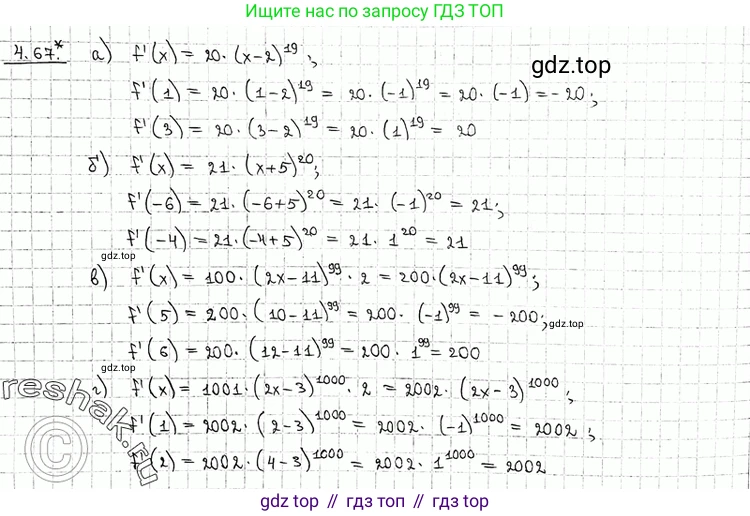 Ищите нас по запросу ГДЗ ТОП
4.67.* а) f'(x) = 20·(x-2)¹⁹;
gdz.top
f'(1) = 20·(1-2)¹⁹ = 20·(-1)¹⁹ = 20·(-1) = -20;
f'(3) = 20·(3-2)¹⁹ = 20·(1)¹⁹ = 20
б) f'(x) = 21·(x+5)²⁰;
f'(-6) = 21·(-6+5)²⁰ = 21·(-1)²⁰ = 21;
f'(-4) = 21·(-4+5)²⁰ = 21·1²⁰ = 21
gdz.top
в) f'(x) = 100·(2x-11)⁹⁹·2 = 200·(2x-11)⁹⁹;
f'(5) = 200·(10-11)⁹⁹ = 200·(-1)⁹⁹ = -200;
gdz.top
f'(6) = 200·(12-11)⁹⁹ = 200·1⁹⁹ = 200
gdz.top
г) f'(x) = 1001·(2x-3)¹⁰⁰⁰·2 = 2002·(2x-3)¹⁰⁰⁰;
f'(1) = 2002·(2-3)¹⁰⁰⁰ = 2002·(-1)¹⁰⁰⁰ = 2002;
f'(2) = 2002·(4-3)¹⁰⁰⁰ = 2002·1¹⁰⁰⁰ = 2002
reshak.ru
©
gdz top // гдз топ // gdz top